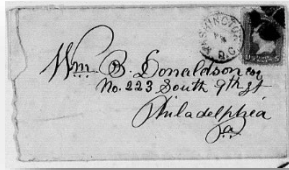 WASHINGTON
D.C.
Wm. B. Donaldson
No. 223 South 9th St
Philadelphia
Pa